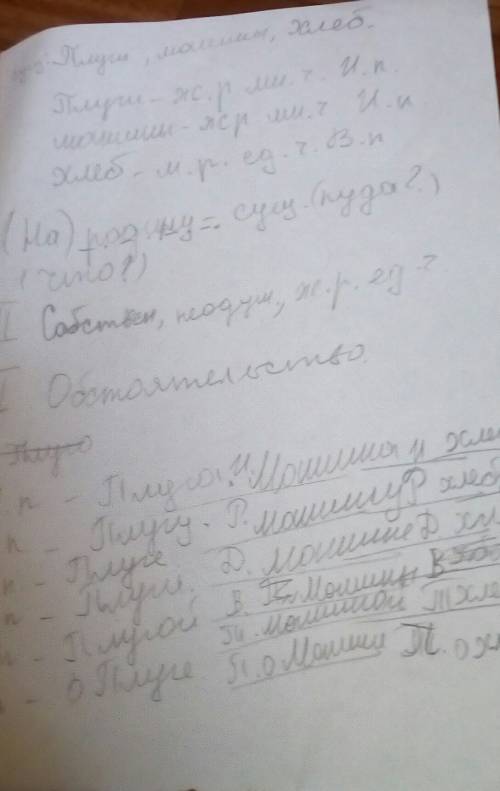 Плуги, машины, хлеб.
Плуги - ж.р мн.ч. И.п.
машины - жр мн.ч И.п.
хлеб - м.р. ед.ч. В.п
(На) родину = сущ. (куда?)
(что?)
II Собствен, неодуш, ж.р. ед ч
I Обстоятельство.
п - Плуга И. Машина и хле
п - Плугу. Р. машину Р хлеб
п - Плуге Д. Машине Д. хл
п - Плуги. В. Машины В
п - Плугой Тв. машиной Т хле
п - о Плуге П. о Машине П. о х